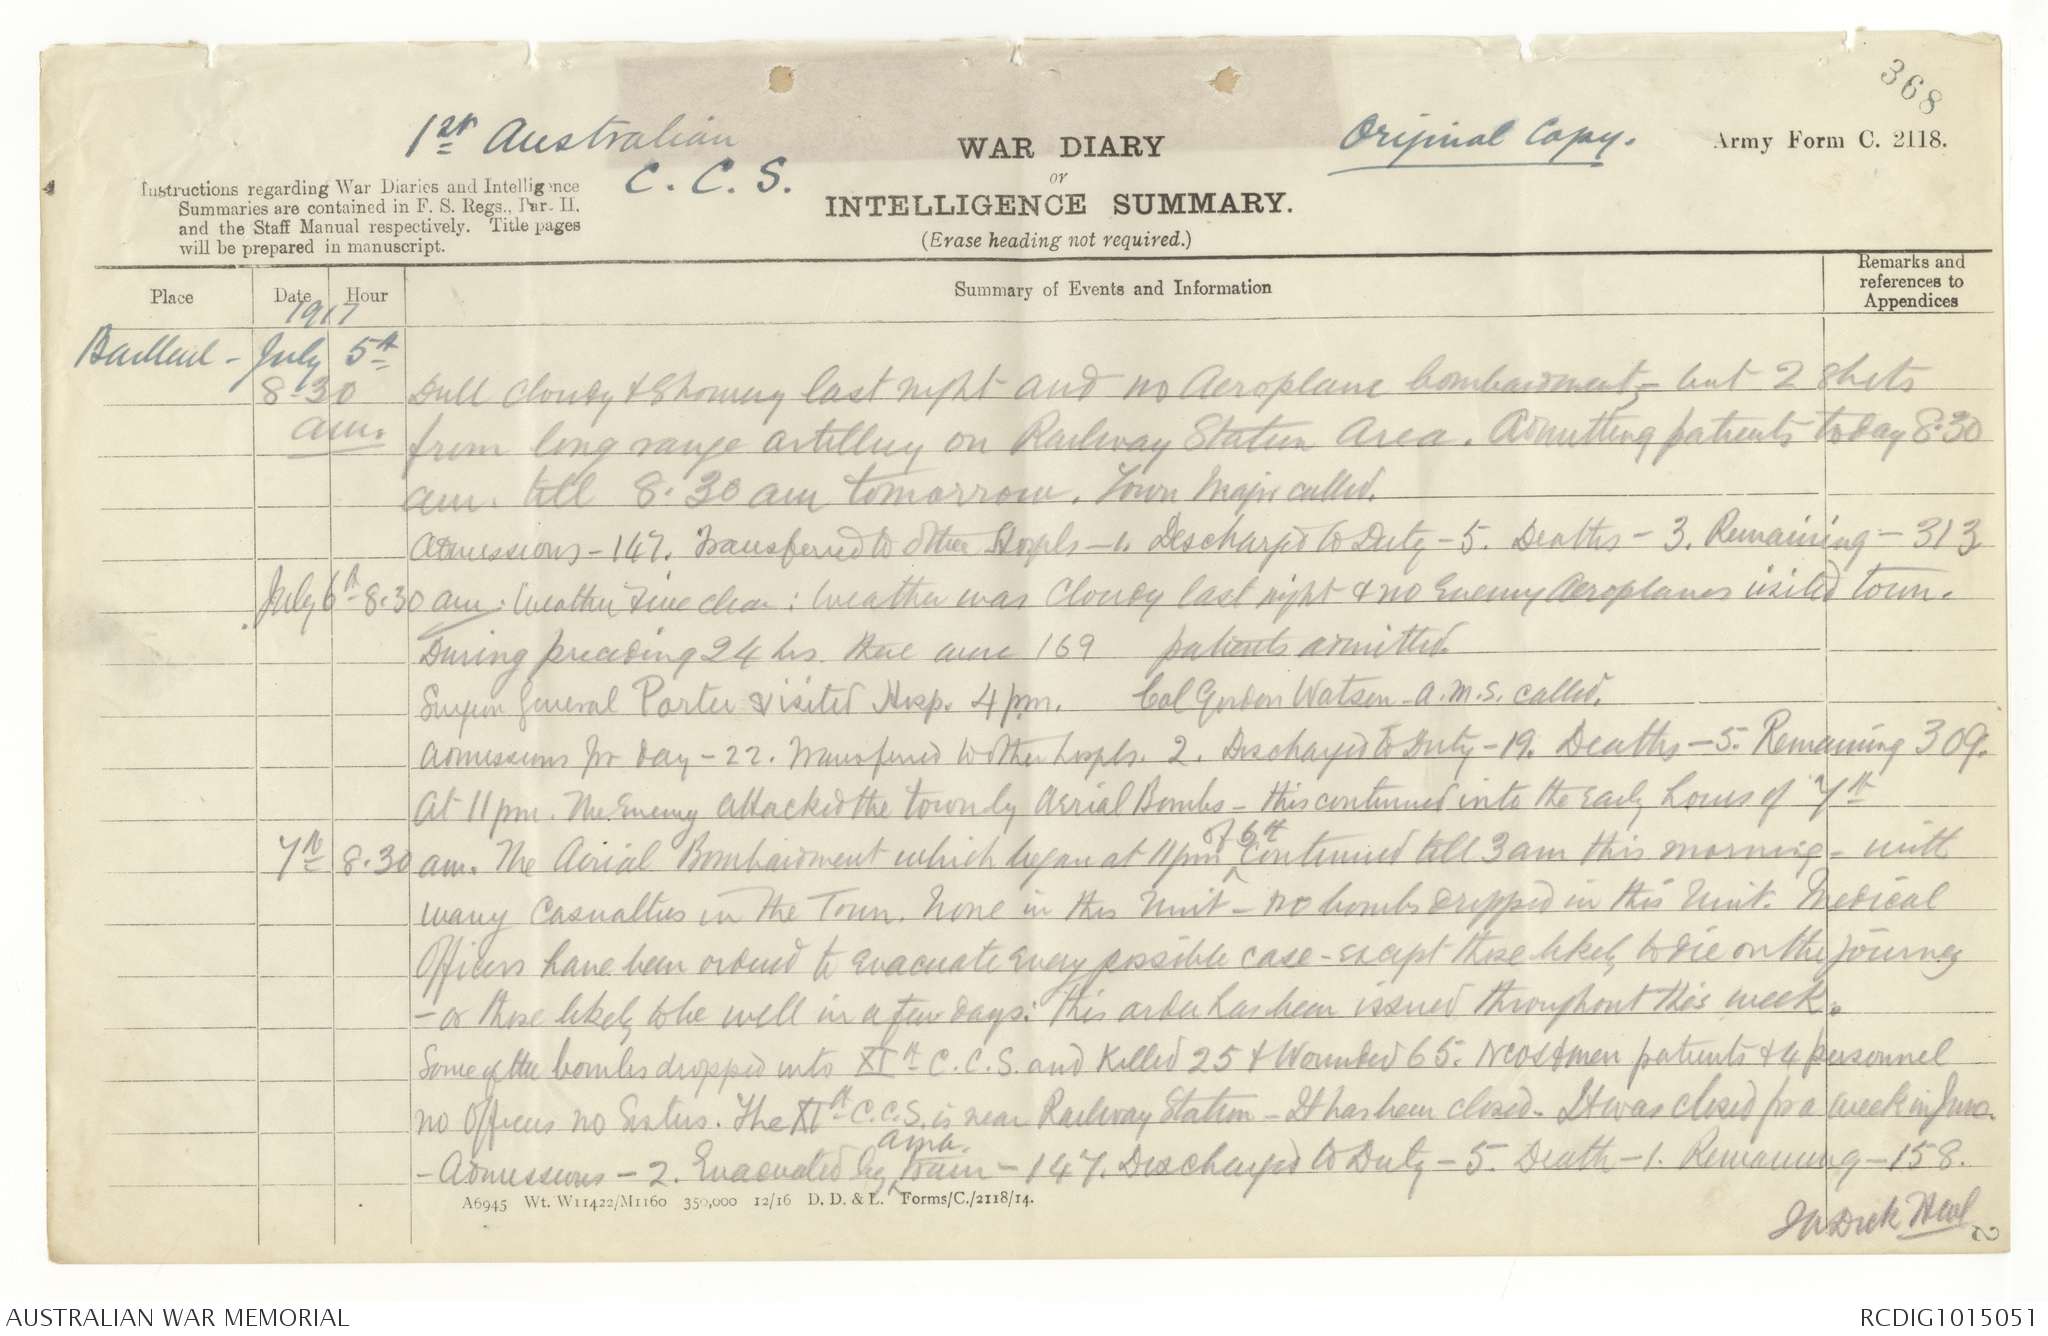 368
1st Australian
C. C. S.
WAR DIARY
or
INTELLIGENCE SUMMARY.
(Erase heading not required.)
Original Copy.
Army Form C. 2118.
Instructions regarding War Diaries and Intelligence
Summaries are contained in F. S. Regs., Part II.
and the Staff Manual respectively. Title pages
will be prepared in manuscript.
Place
Date
Hour
Summary of Events and Information
Remarks and
references to
Appendices
1917
Bailleul - July 5th
8.30 Dull cloudy & Showery last night and no Aeroplane bombardment, - but 2 shots
am. from long range artillery on Railway Station Area. Admitting patients today 8.30
am. till 8.30 am tomorrow. Town Major called.
Admissions - 147. Transferred to other Hospls - 1. Discharged to Duty - 5. Deaths - 3. Remaining - 313
July 6th 8.30 am: Weather fine clear: Weather was Cloudy last night & no Enemy Aeroplanes visited town.
During preceding 24 hrs. there were 169 patients admitted.
Surgeon General Porter visited Hosp. 4 pm. Col Gordon Watson A.M.S. called.
Admissions for day - 22. Transferred to other hospls. 2. Discharged to Duty - 19. Deaths - 5. Remaining 309.
At 11 pm. The Enemy attacked the town by Aerial Bombs - this continued into the early hours of 7th
7th 8.30 am. The Aerial Bombardment which began at 11 pm of 6th continued till 3 am this morning - with
many casualties in the Town. None in this Unit - no bombs dropped in this Unit. Medical
Officers have been ordered to evacuate every possible case - except those likely to die on the journey
- or those likely to be well in a few days: this order has been issued throughout this week.
Some of the bombs dropped into XIth C.C.S. and killed 25 & Wounded 65. NCOs & men patients & 4 personnel
no Officers no Sisters. The XIth C.C.S. is near Railway Station - It has been closed. It was closed for a week in June.
- Admissions - 2. Evacuated by amb. train - 147. Discharged to Duty - 5. Death - 1. Remaining - 158.
A6945 Wt. W11422/M1160 350,000 12/16 D. D. & L. Forms/C./2118/14.
Dick Lt Col
2
AUSTRALIAN WAR MEMORIAL
RCDIG1015051